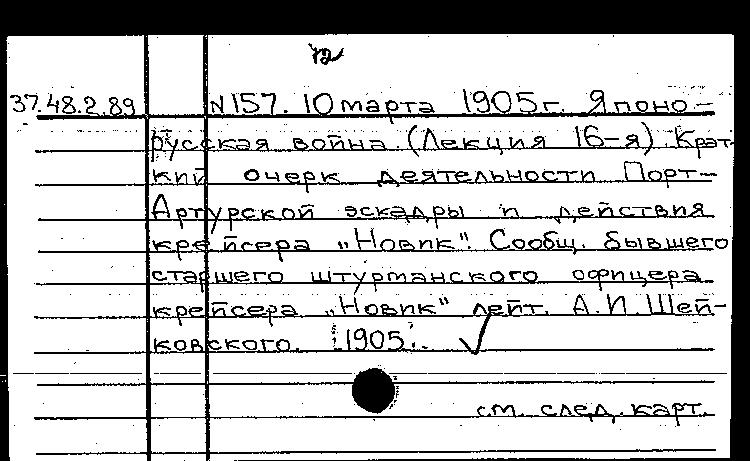 72
37.48.2.89 N157. 10 марта 1905г. Японо-
русская война. (Лекция 16-я). Крат-
кий очерк деятельности Порт-
Артурской эскадры и действия
крейсера „Новик". Сообщ. бывшего
старшего штурманского офицера
крейсера „Новик" лейт. А.П. Шей-
ковского. [1905]. ✓
см. след. карт.